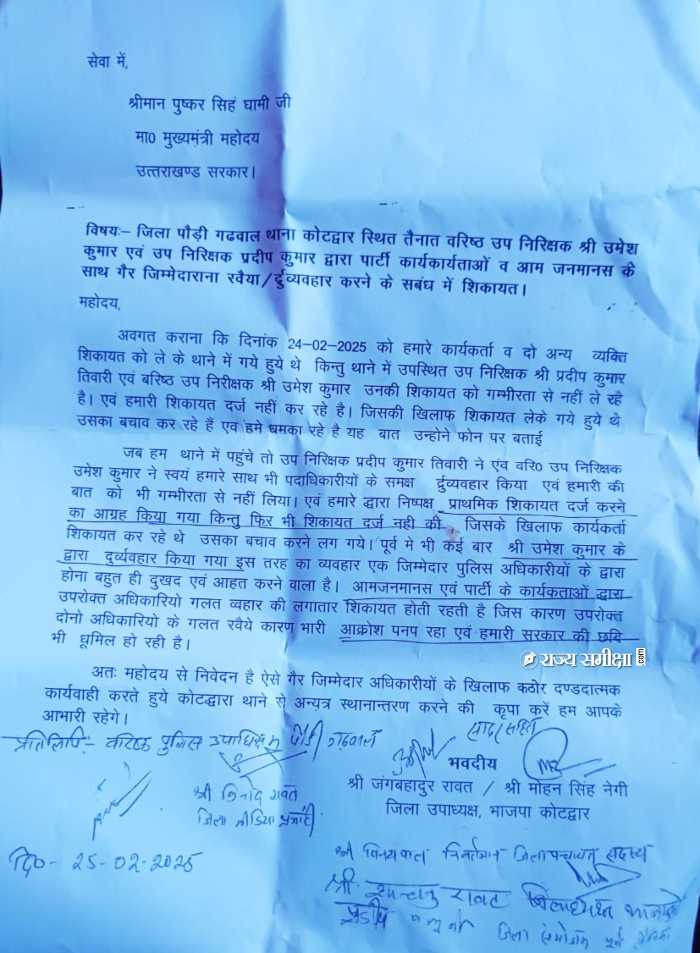 सेवा में,
श्रीमान पुष्कर सिहं धामी जी
मा0 मुख्यमंत्री महोदय
उत्तराखण्ड सरकार।
विषयः– जिला पौड़ी गढवाल थाना कोटद्वार स्थित तैनात वरिष्ठ उप निरिक्षक श्री उमेश
कुमार एवं उप निरिक्षक प्रदीप कुमार द्वारा पार्टी कार्यकार्यताओं व आम जनमानस के
साथ गैर जिम्मेदाराना रवैया/र्दुव्यवहार करने के सबंध में शिकायत।
महोदय,
अवगत कराना कि दिनांक 24–02–2025 को हमारे कार्यकर्ता व दो अन्य व्यक्ति
शिकायत को ले के थाने में गये हुये थे किन्तु थाने में उपस्थित उप निरिक्षक श्री प्रदीप कुमार
तिवारी एवं बरिष्ठ उप निरीक्षक श्री उमेश कुमार उनकी शिकायत को गम्भीरता से नहीं ले रहे
है। एवं हमारी शिकायत दर्ज नहीं कर रहे है। जिसकी खिलाफ शिकायत लेके गये हुये थे
उसका बचाव कर रहे हैं एवं हमे धमका रहे है यह बात उन्होने फोन पर बताई
जब हम थाने में पहुंचे तो उप निरिक्षक प्रदीप कुमार तिवारी ने एंव वरि0 उप निरिक्षक
उमेश कुमार ने स्वयं हमारे साथ भी पदाधिकारीयों के समक्ष र्दुव्यवहार किया एवं हमारी की
बात को भी गम्भीरता से नहीं लिया। एवं हमारे द्धारा निष्पक्ष प्राथमिक शिकायत दर्ज करने
का आग्रह किया गया किन्तु फिर भी शिकायत दर्ज नही की जिसके खिलाफ कार्यकर्ता
शिकायत कर रहे थे उसका बचाव करने लग गये। पूर्व मे भी कई बार श्री उमेश कुमार के
द्वारा दुर्व्यवहार किया गया इस तरह का व्यवहार एक जिम्मेदार पुलिस अधिकारीयों के द्वारा
होना बहुत ही दुखद एवं आहत करने वाला है। आमजनमानस एवं पार्टी के कार्यकताओं द्धारा
उपरोक्त अधिकारियो गलत व्यहार की लगातार शिकायत होती रहती है जिस कारण उपरोक्त
दोनो अधिकारियो के गलत रवैये कारण भारी आक्रोश पनप रहा एवं हमारी सरकार की छवि
भी धूमिल हो रही है।
राज्य समीक्षा .com
अतः महोदय से निवेदन है ऐसे गैर जिम्मेदार अधिकारीयों के खिलाफ कठोर दण्डदात्मक
कार्यवाही करते हुये कोटद्धारा थाने से अन्यत्र स्थानान्तरण करने की कृपा करें हम आपके
आभारी रहेगे।
प्रतिलिपि:- वरिष्ठ पुलिस पौडी गढवाल
भवदीय
श्री जंगबहादुर रावत / श्री मोहन सिंह नेगी
जिला उपाध्यक्ष, भाजपा कोटद्वार
श्री विनोद रावत
जिला मीडिया प्रभारी
दि0- 25-02-2025
जिला पंचायत सदस्य
श्री रावत
जिला